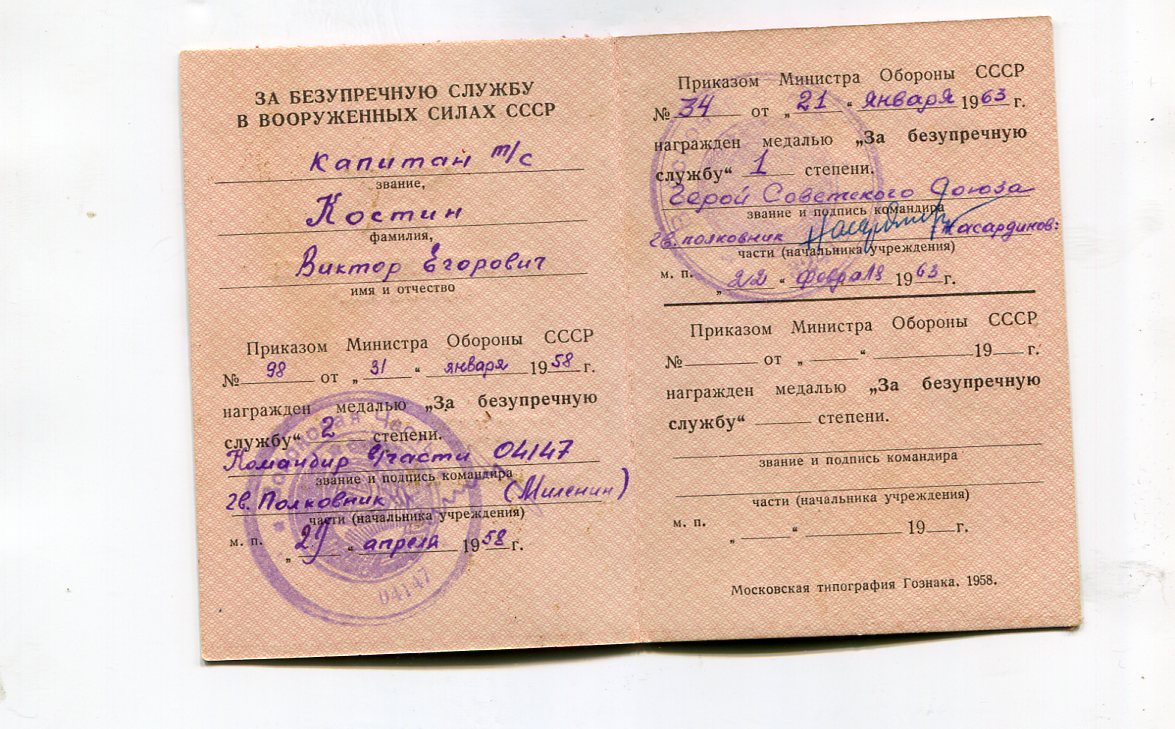 ЗА БЕЗУПРЕЧНУЮ СЛУЖБУ
В ВООРУЖЕННЫХ СИЛАХ СССР
Капитан т/с
звание,
Костин
фамилия,
Виктор Егорович
имя и отчество
Приказом Министра Обороны СССР
№ 98 от „31“ января 1958 г.
награжден медалью „За безупречную
службу“ 2 степени.
Командир части 04147
звание и подпись командира
гв. Полковник (Миленин)
части (начальника учреждения)
м. п.
„29“ апреля 1958 г.
04147
Приказом Министра Обороны СССР
№ 34 от „21“ января 1963 г.
награжден медалью „За безупречную
службу“ 1 степени.
Герой Советского Союза
звание и подпись командира
гв. полковник Насардинов:
части (начальника учреждения)
м. п.
„22“ февраля 1963 г.
Приказом Министра Обороны СССР
№ от „ “ 19 г.
награжден медалью „За безупречную
службу“ степени.
звание и подпись командира
части (начальника учреждения)
м. п.
„ “ 19 г.
Московская типография Гознака. 1958.